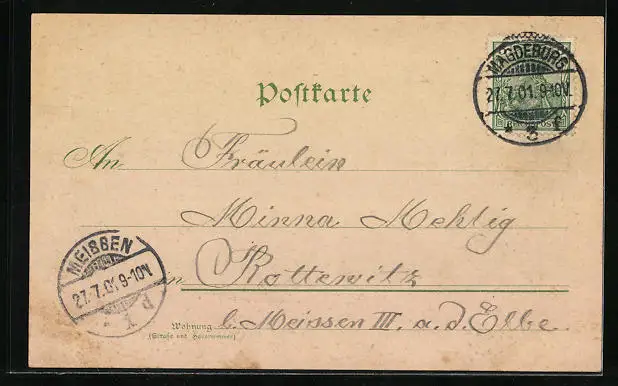 Postkarte
MAGDEBURG
27.7.01.9-10V.
* 3 f
An Fräulein
Minna Mehlig
in Rottewitz
Wohnung b. Meissen III. a. d. Elbe.
(Straße und Hausnummer)
MEISSEN
27.7.01.9-10V.